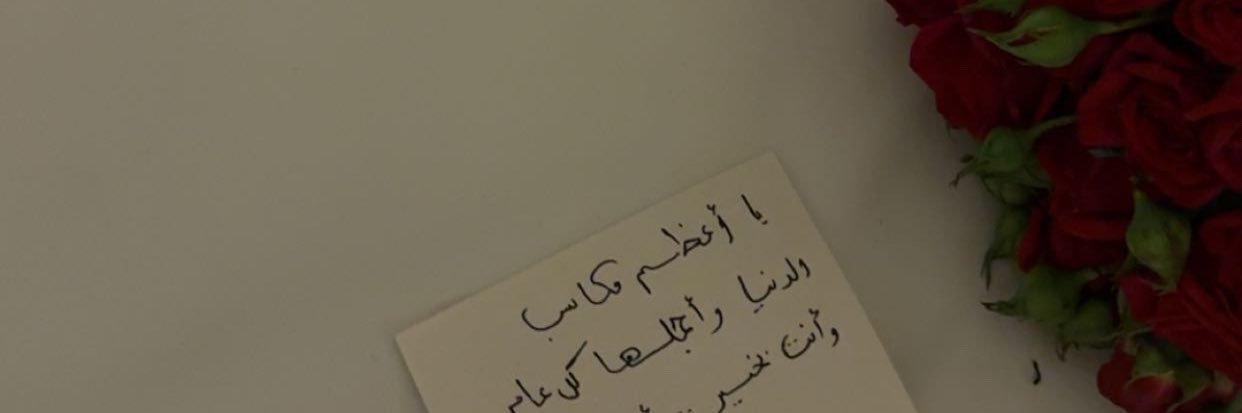 يا أعظم مكاسب
ولدنيا وأجملها كل عام
وأنت بخير